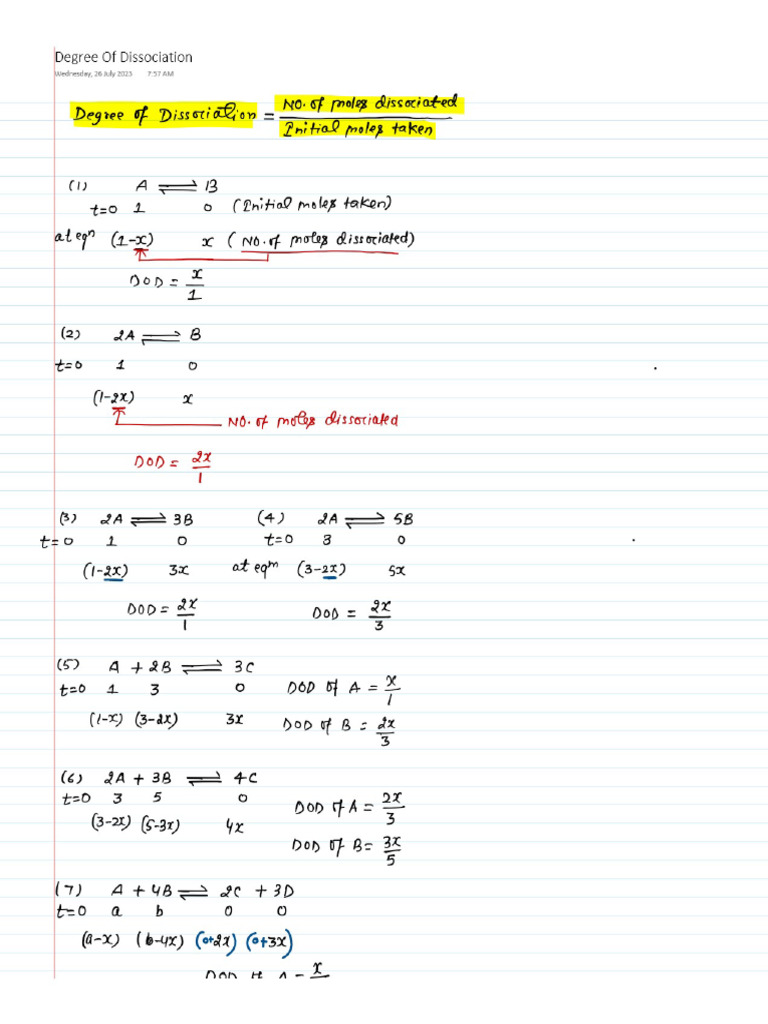 Degree Of Dissociation
Wednesday, 26 July 2023 7:57 AM
Degree of Dissociation = No. of moles dissociated / Initial moles taken
(1) A ⇌ B
t=0 1 0 (Initial moles taken)
at eqn (1-x) x (No. of moles dissociated)
DOD = x/1
(2) 2A ⇌ B
t=0 1 0
(1-2x) x
No. of moles dissociated
DOD = 2x/1
(3) 2A ⇌ 3B (4) 2A ⇌ 5B
t=0 1 0 t=0 3 0
(1-2x) 3x at eqm (3-2x) 5x
DOD = 2x/1 DOD = 2x/3
(5) A + 2B ⇌ 3C
t=0 1 3 0 DOD of A = x/1
(1-x) (3-2x) 3x DOD of B = 2x/3
(6) 2A + 3B ⇌ 4C
t=0 3 5 0 DOD of A = 2x/3
(3-2x) (5-3x) 4x DOD of B = 3x/5
(7) A + 4B ⇌ 2C + 3D
t=0 a b 0 0
(a-x) (b-4x) (0+2x) (0+3x)
DOD of A = x